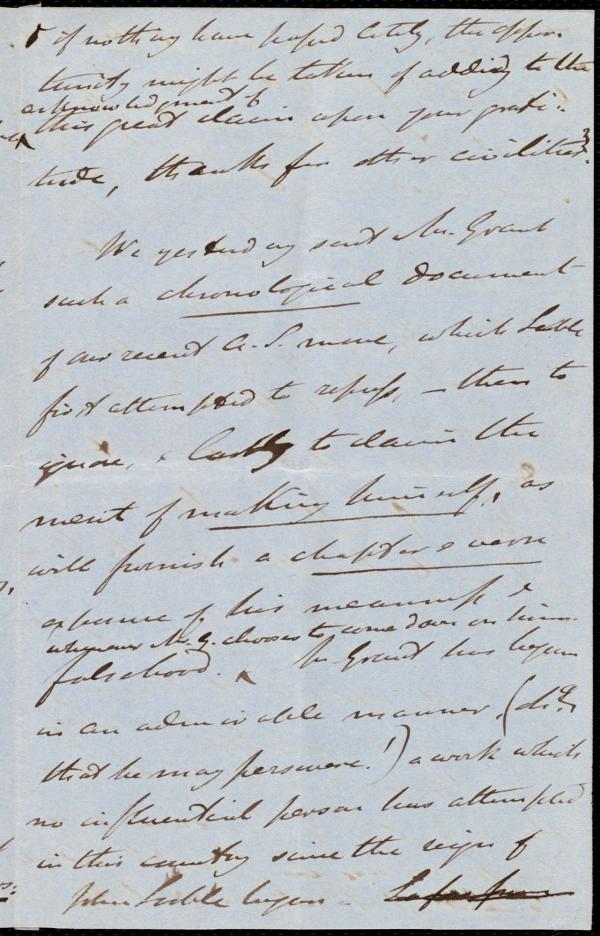 & if nothing have passed lately, the oppor-
tunity might be taken of adding to the
acknowledgment of
this great claim upon your grati-
tude, thanks for other civilities.
We yesterday sent Mr. Grant
such a chronological document
of our recent A. S. move, which Scoble
first attempted to repress, - then to
ignore, & lastly to claim the
merit of making himself, as
will furnish a chapter & verse
exposure of his meanness &
whenever Mr. G. chooses to come down on him.
falsehood. Mr Grant has begun
in an admirable manner,
that he may persevere!) a work which
no influential person has attempted
in this country since the reign of
John Scoble began -